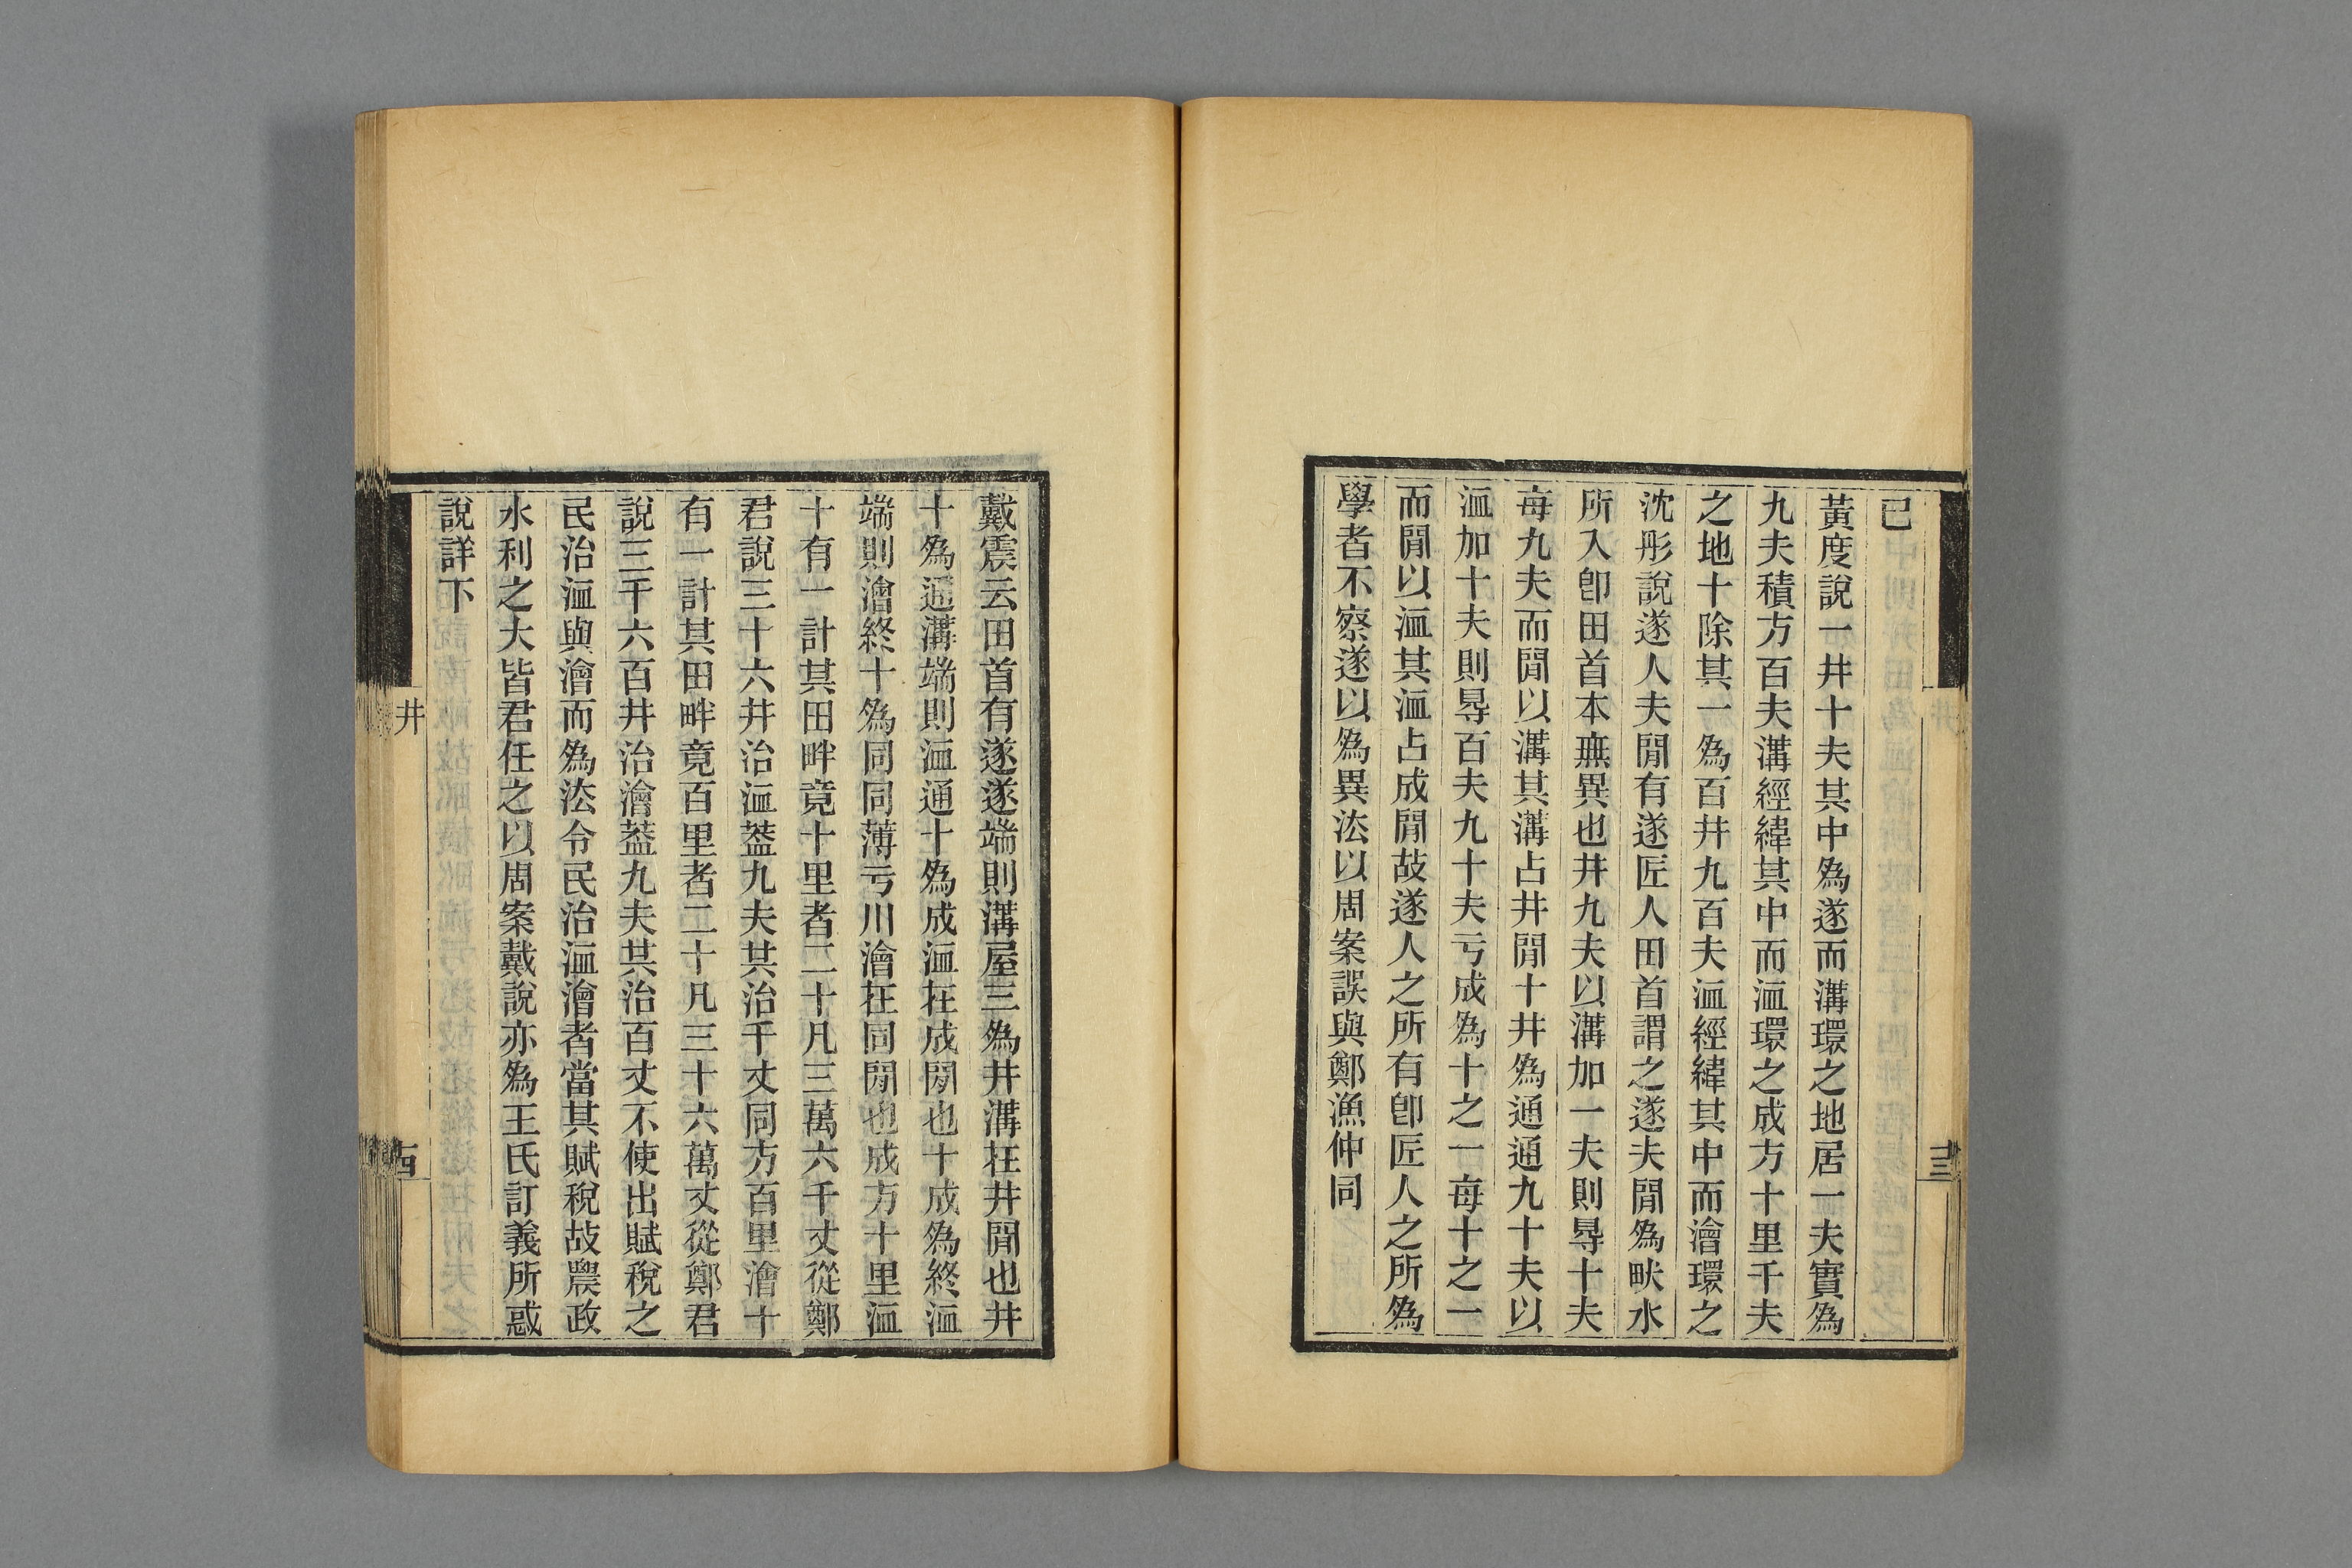 已
黃度說一井十夫其中為遂而溝環之地居一夫實為
九夫積方百夫溝經緯其中而洫環之成方十里千夫
之地十除其一為百井九百夫洫經緯其中而澮環之
沈彤說遂人夫閒有遂匠人田首謂之遂夫閒為畎水
所入卽田首本無異也井九夫以溝加一夫則㝵十夫
每九夫而閒以溝其溝占井閒十井為通通九十夫以
洫加十夫則㝵百夫九十夫亏成為十之一每十之一
而閒以洫其洫占成閒故遂人之所有卽匠人之所為
學者不察遂以為異法以周案誤與鄭漁仲同
三
戴震云田首有遂遂端則溝屋三為井溝在井閒也井
十為通溝端則洫通十為成洫在成閒也十成為終洫
端則澮終十為同同薄亏川澮在同閒也成方十里洫
十有一計其田畔竟十里者二十凡三萬六千丈從鄭
君說三十六井治洫葢九夫其治千丈同方百里澮十
有一計其田畔竟百里者二十凡三十六萬丈從鄭君
說三千六百井治澮葢九夫其治百丈不使出賦稅之
民治洫與澮而為法令民治洫澮者當其賦稅故農政
水利之大皆君任之以周案戴說亦為王氏訂義所惑
說詳下
井
四